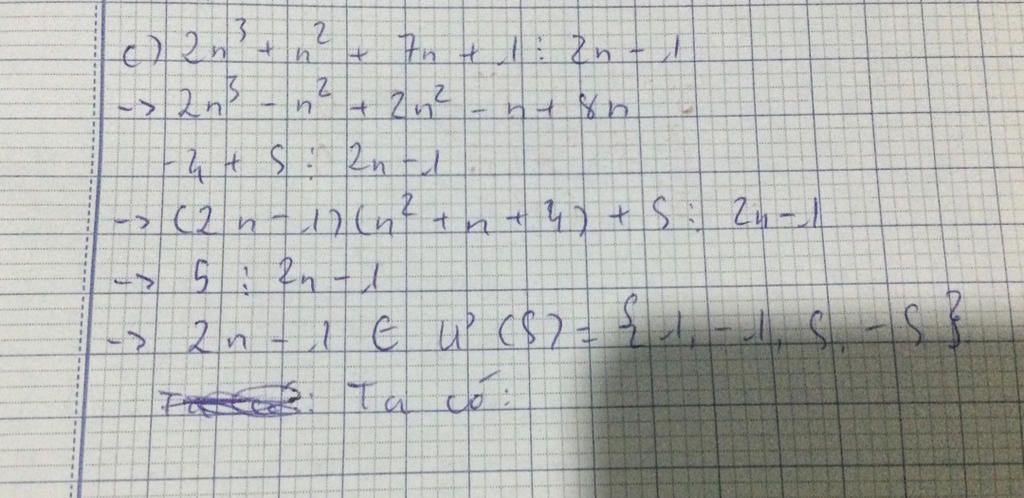 c) 2n³ + n² + 7n + 1 ⋮ 2n - 1
-> 2n³ - n² + 2n² - n + 8n
- 4 + 5 ⋮ 2n - 1
-> (2n - 1)(n² + n + 4) + 5 ⋮ 2n - 1
-> 5 ⋮ 2n - 1
-> 2n - 1 ∈ Ư(5) = {1, -1, 5, -5}
: Ta có: